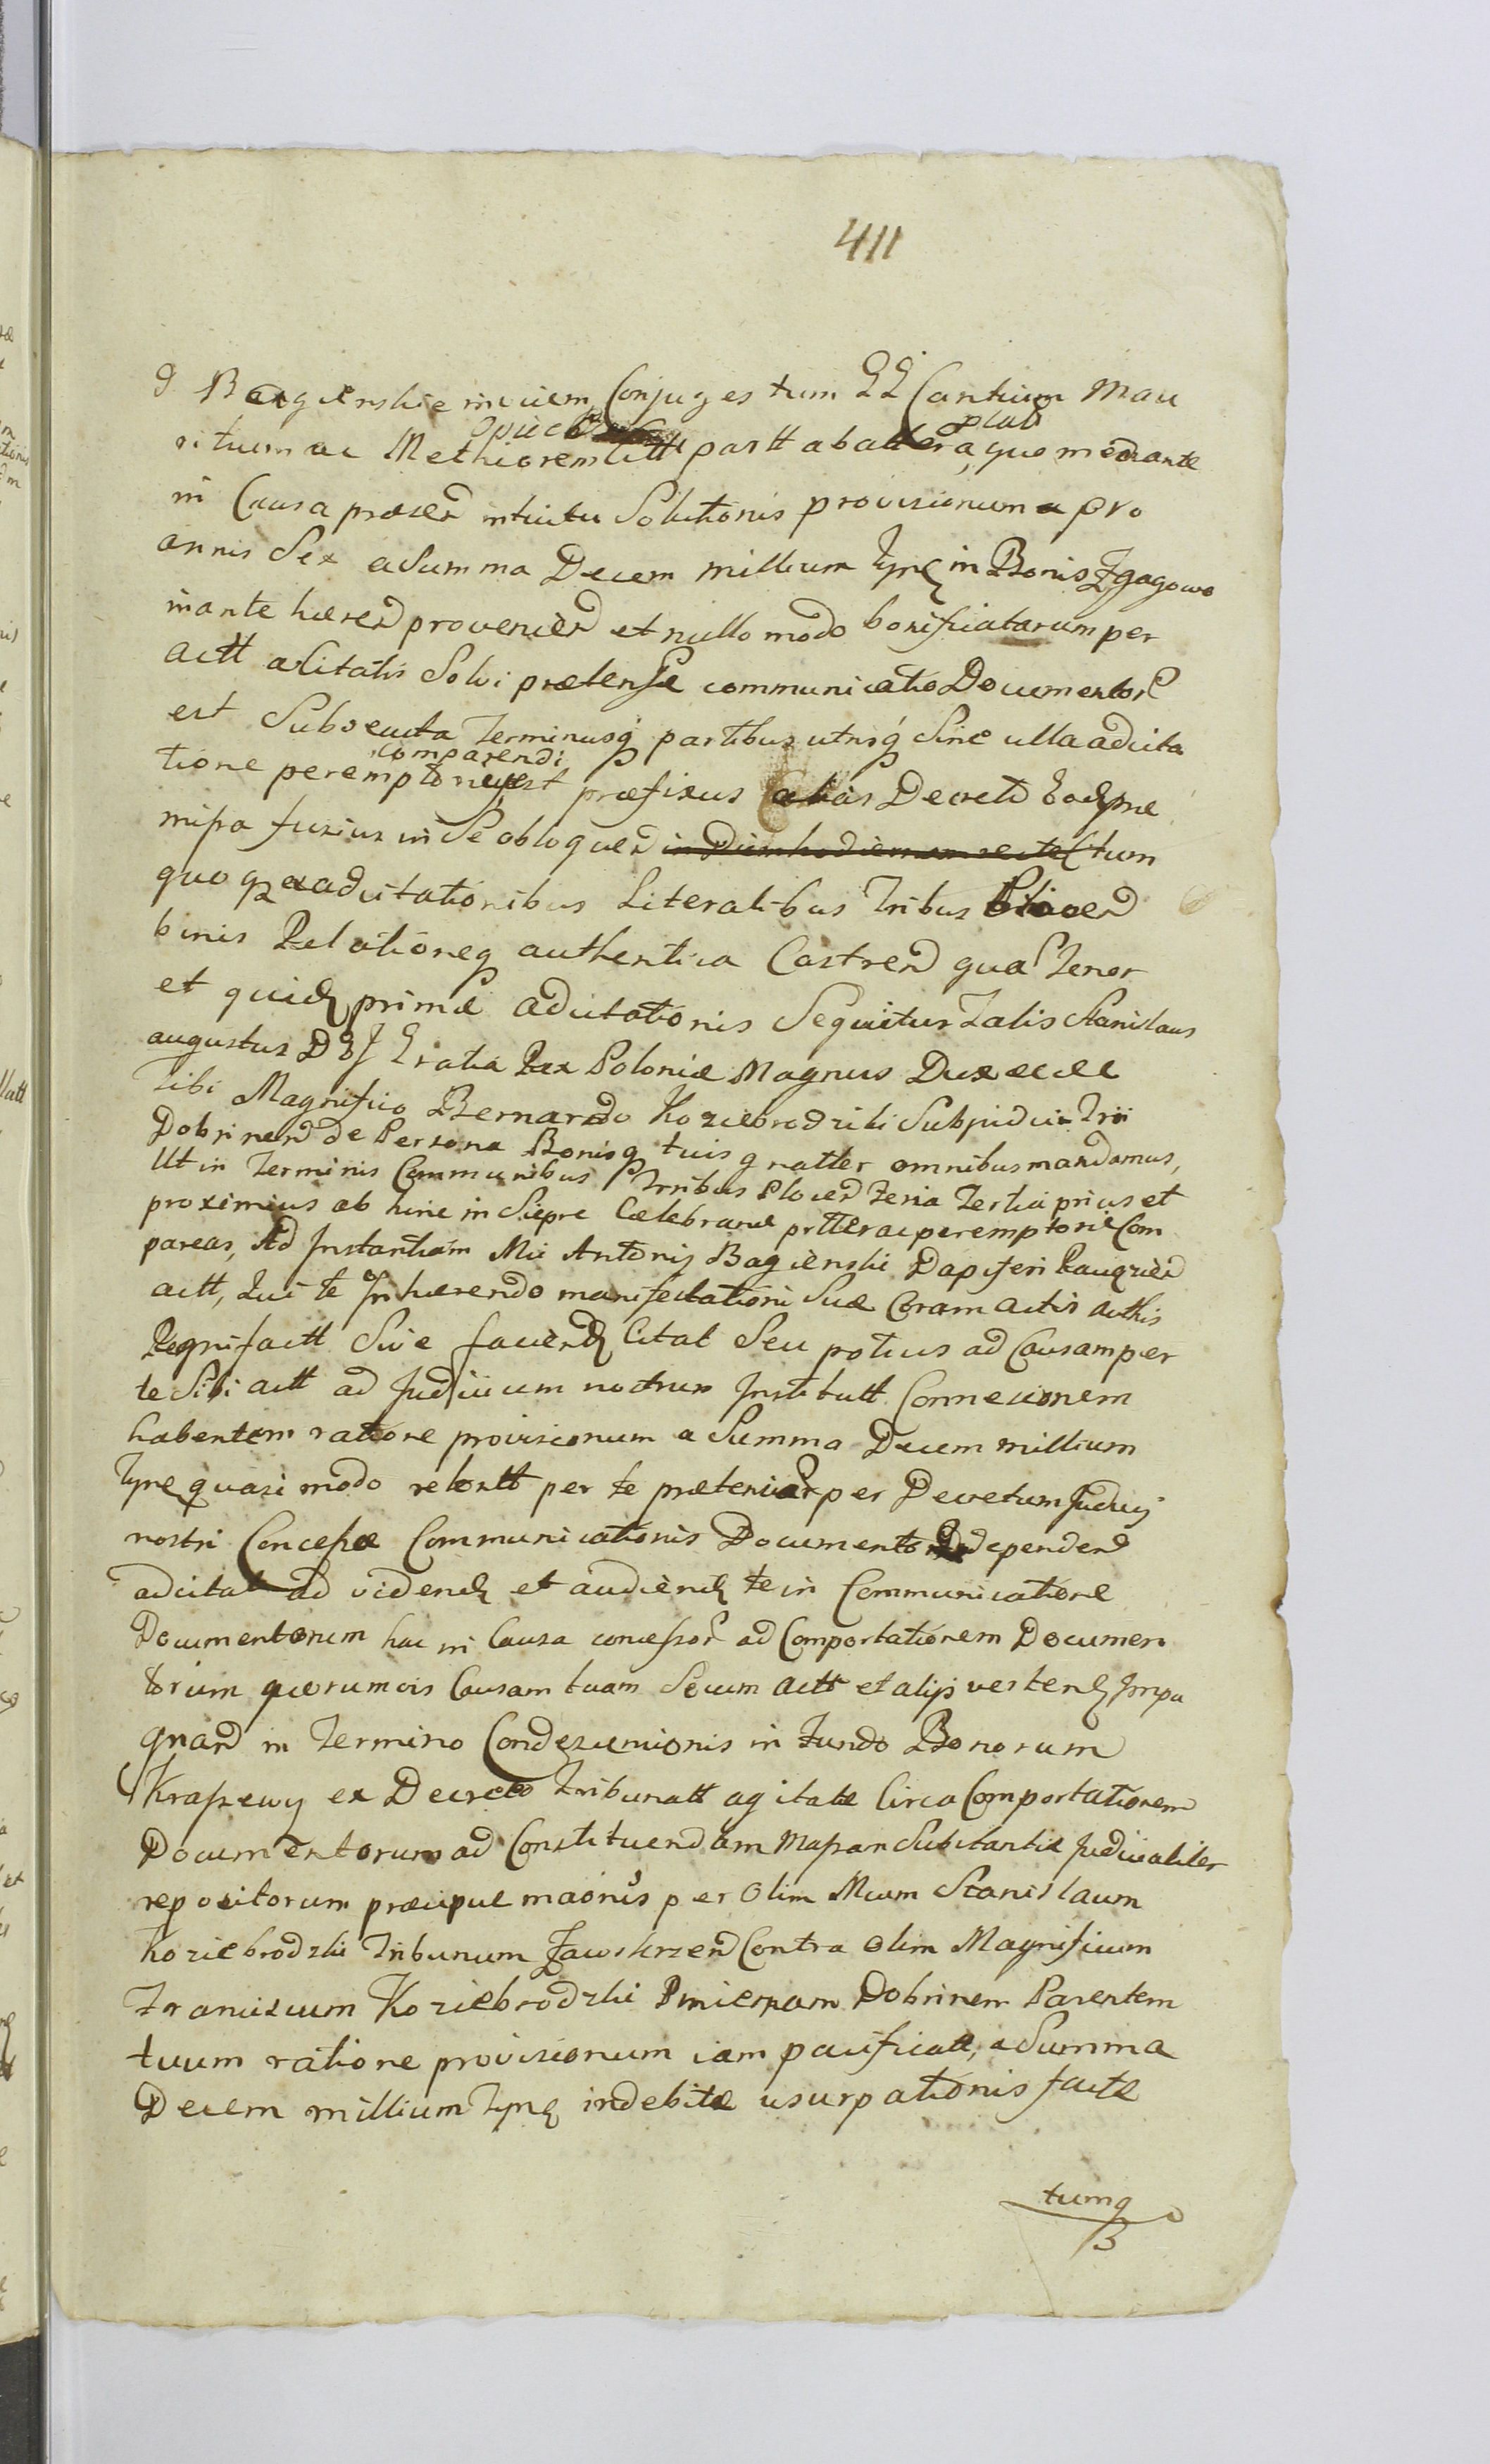 411
Bagienskie invicem Conjuges tum GG Cantium Mau
ritium ac Methiorem Citt partt ab altera, quo mediante
in Causa præsen intuitu Solutionis provisionum a pro
annis Sex a Summa Decem millium Tynf in Bonis Zgagowo
inante hæren provenien et nullo modo bonificatarum per
Actt a Citatis Solvi prætensæ communicatio Documentor
est Subsecuta Terminusq partibus utrisq Sine ulla adcita
comparendi
tione peremptorie est præfixus alias Decreto Eodem præ
misso fusius in Se obloquen in Diem hodiernum Ctum
quoq ex adcitationibus Literalibus Tribus
binis Relationeq authentica Castren qua Tenor
et quidem primæ adcitationis Sequitur Talis Stanislaus
augustus D G Gratia Rex Poloniæ Magnus Dux etc etc
Tibi Magnifico Bernardo Koziebrodzki Subjudici Trii
Dobrinen de Persona Bonisq tuis gnatter omnibus mandamus,
Ut in Terminis Communibus Trribus Plocen Feria Tertia prius et
proximius ab hinc in Siepre Celebrand pttter ac peremptorie Com
pareas, Ad Instantiam Mci Antonij Bagienski Dapiferi Raugzien
actt, Qui te Inhærendo manifestationi Suæ Coram actis authis
Regni factt Sive faciend Citat Seu potius ad Causam per
te Sibi actt ad Judicium nostrum Institutt Connexionem
habentem ratione provisionum a Summa Decem millium
Tynf quasi modo retentt per te prætensar per Decretum Judicij
nostri Concessæ Communicationis Documentor dependen
adcitat ad vidend et audiend te in Communicatione
Documentorum hac in Causa concessor ad Comportationem Documen
torum quorumvis Causam tuam Secum actt et alijs vertend Impu
gnan in Termino Condescensionis in Fundo Bonorum
Kraszewy ex Decreto Tribunatt agitatæ Circa Comportationem
Documentorum ad Constituendam Massam Substantiæ Judicialiter
repositorum præcipue maonis per Olim Mcum Stanislaum
Koziebrodzki Tribunum Zawskrzen Contra Olim Magnificum
Franciscum Koziebrodzki Pincernam Dobrinen Parentem
tuum ratione provisionum iam pacificatt, a Summa
Decem millium Tynf indebitæ usurpationis factæ
tumq